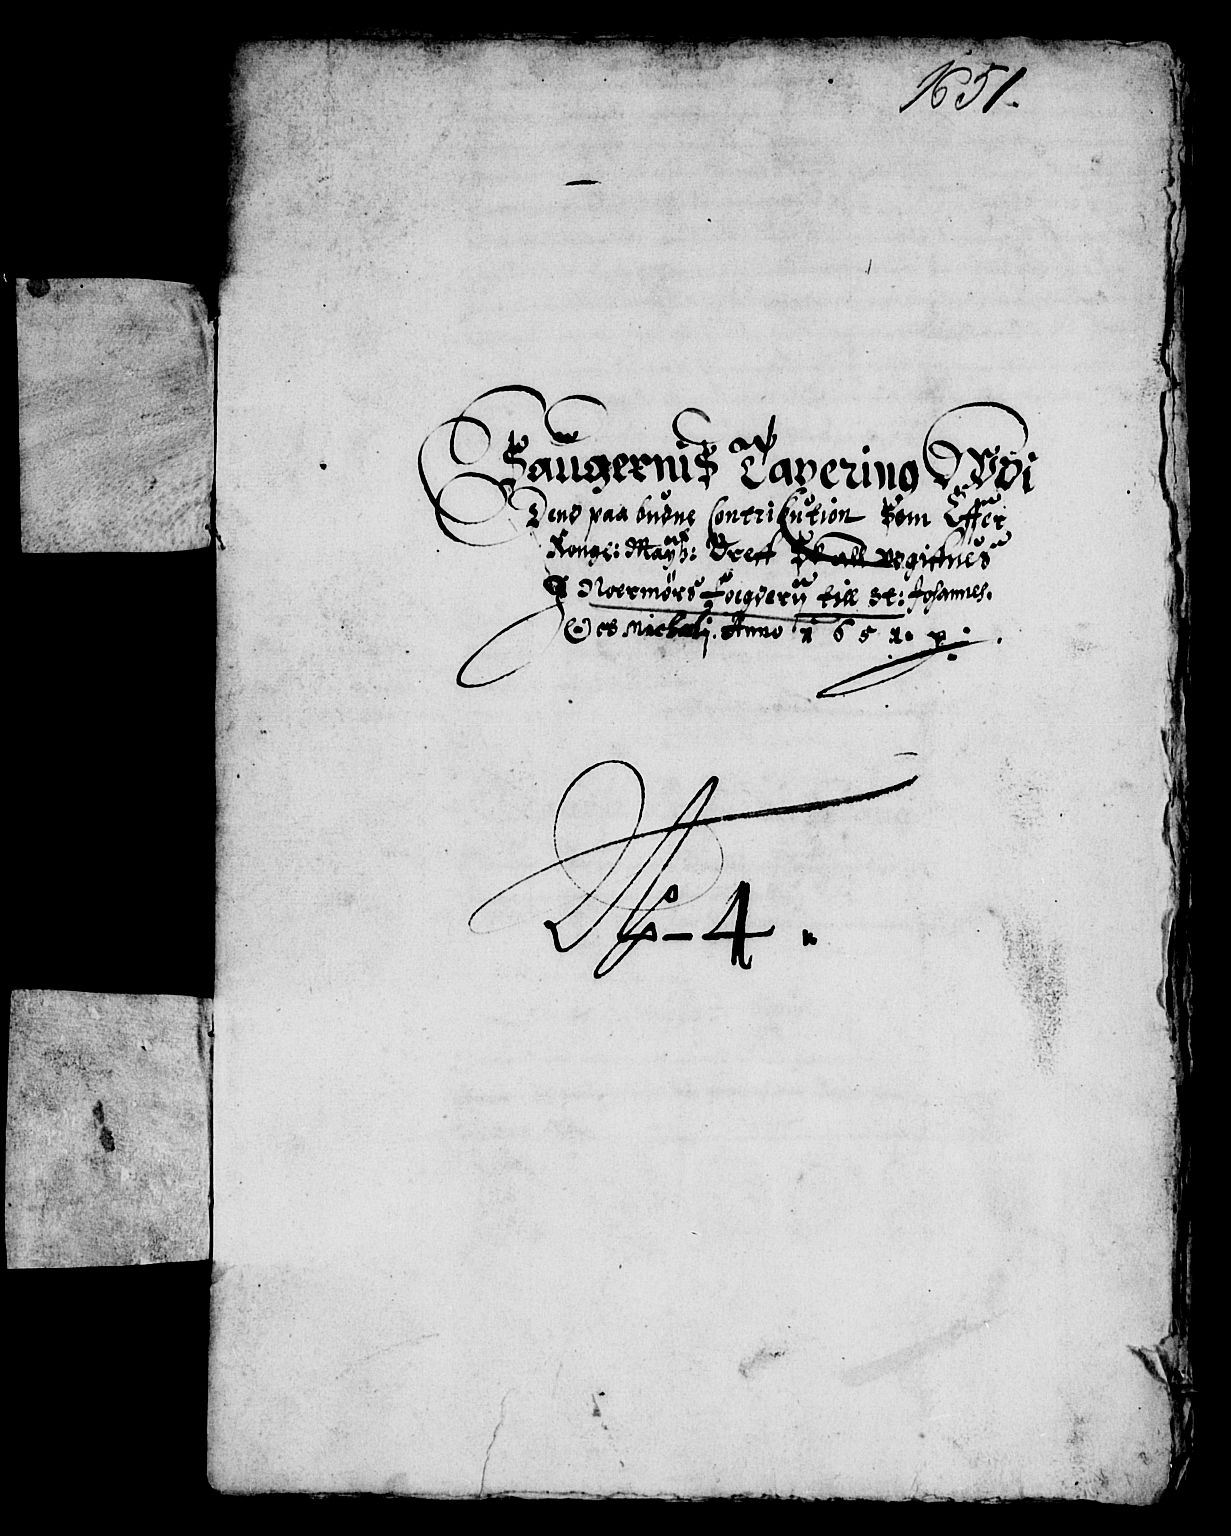 1651.
Saugernis Tapering Wdi
Dend paa budne Contribution som Effter
Konge: Mayts: Breff skall udgiffues
Noermørs Foigderij till St: Johannes.
Oc Michaelj. Anno 1651. p:
No 4.